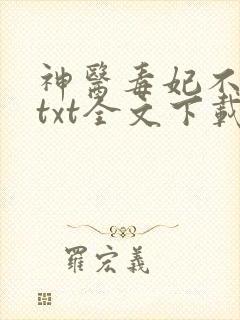 神醫毒妃不
txt全文下載
羅宏義